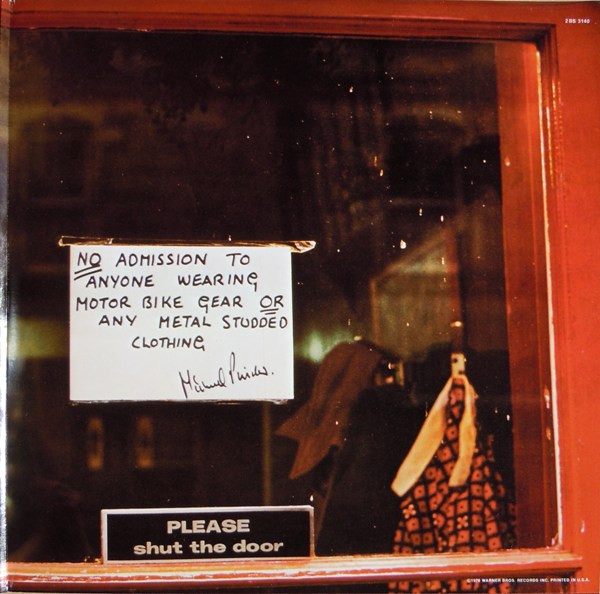 2BS 3140
NO ADMISSION TO
ANYONE WEARING
MOTOR BIKE GEAR OR
ANY METAL STUDDED
CLOTHING
PLEASE
shut the door
©1978 WARNER BROS. RECORDS INC. PRINTED IN U.S.A.